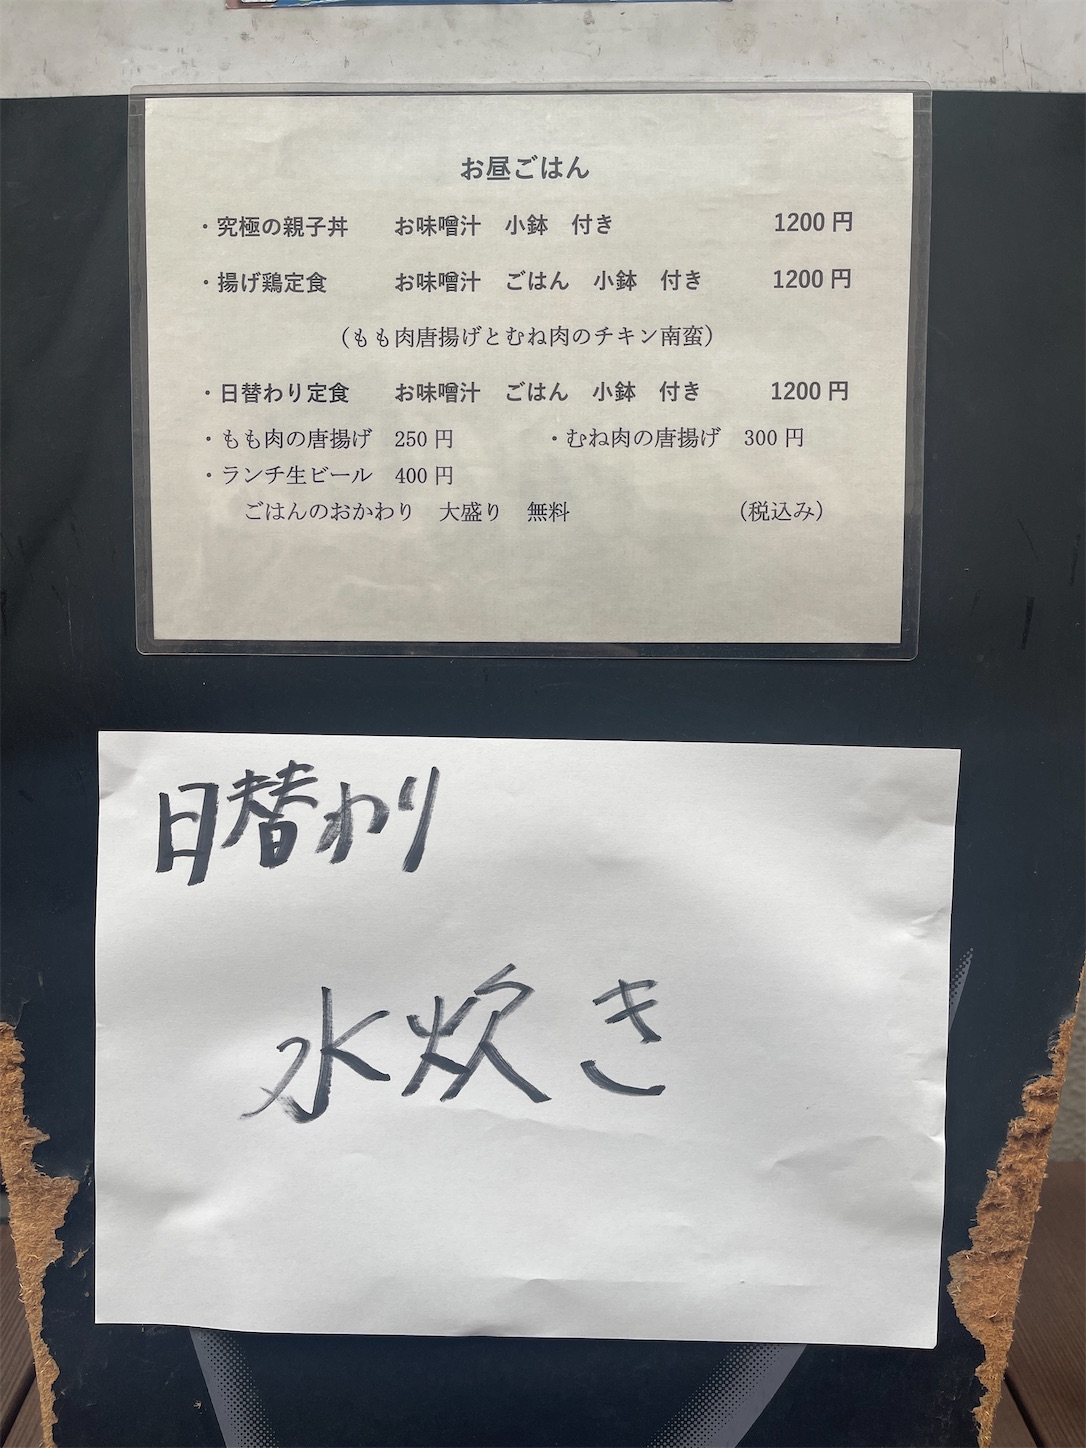 お昼ごはん
・究極の親子丼　お味噌汁　小鉢　付き　1200円
・揚げ鶏定食　お味噌汁　ごはん　小鉢　付き　1200円
（もも肉唐揚げとむね肉のチキン南蛮）
・日替わり定食　お味噌汁　ごはん　小鉢　付き　1200円
・もも肉の唐揚げ　250円　・むね肉の唐揚げ　300円
・ランチ生ビール　400円
ごはんのおかわり　大盛り　無料　（税込み）
日替わり
水炊き